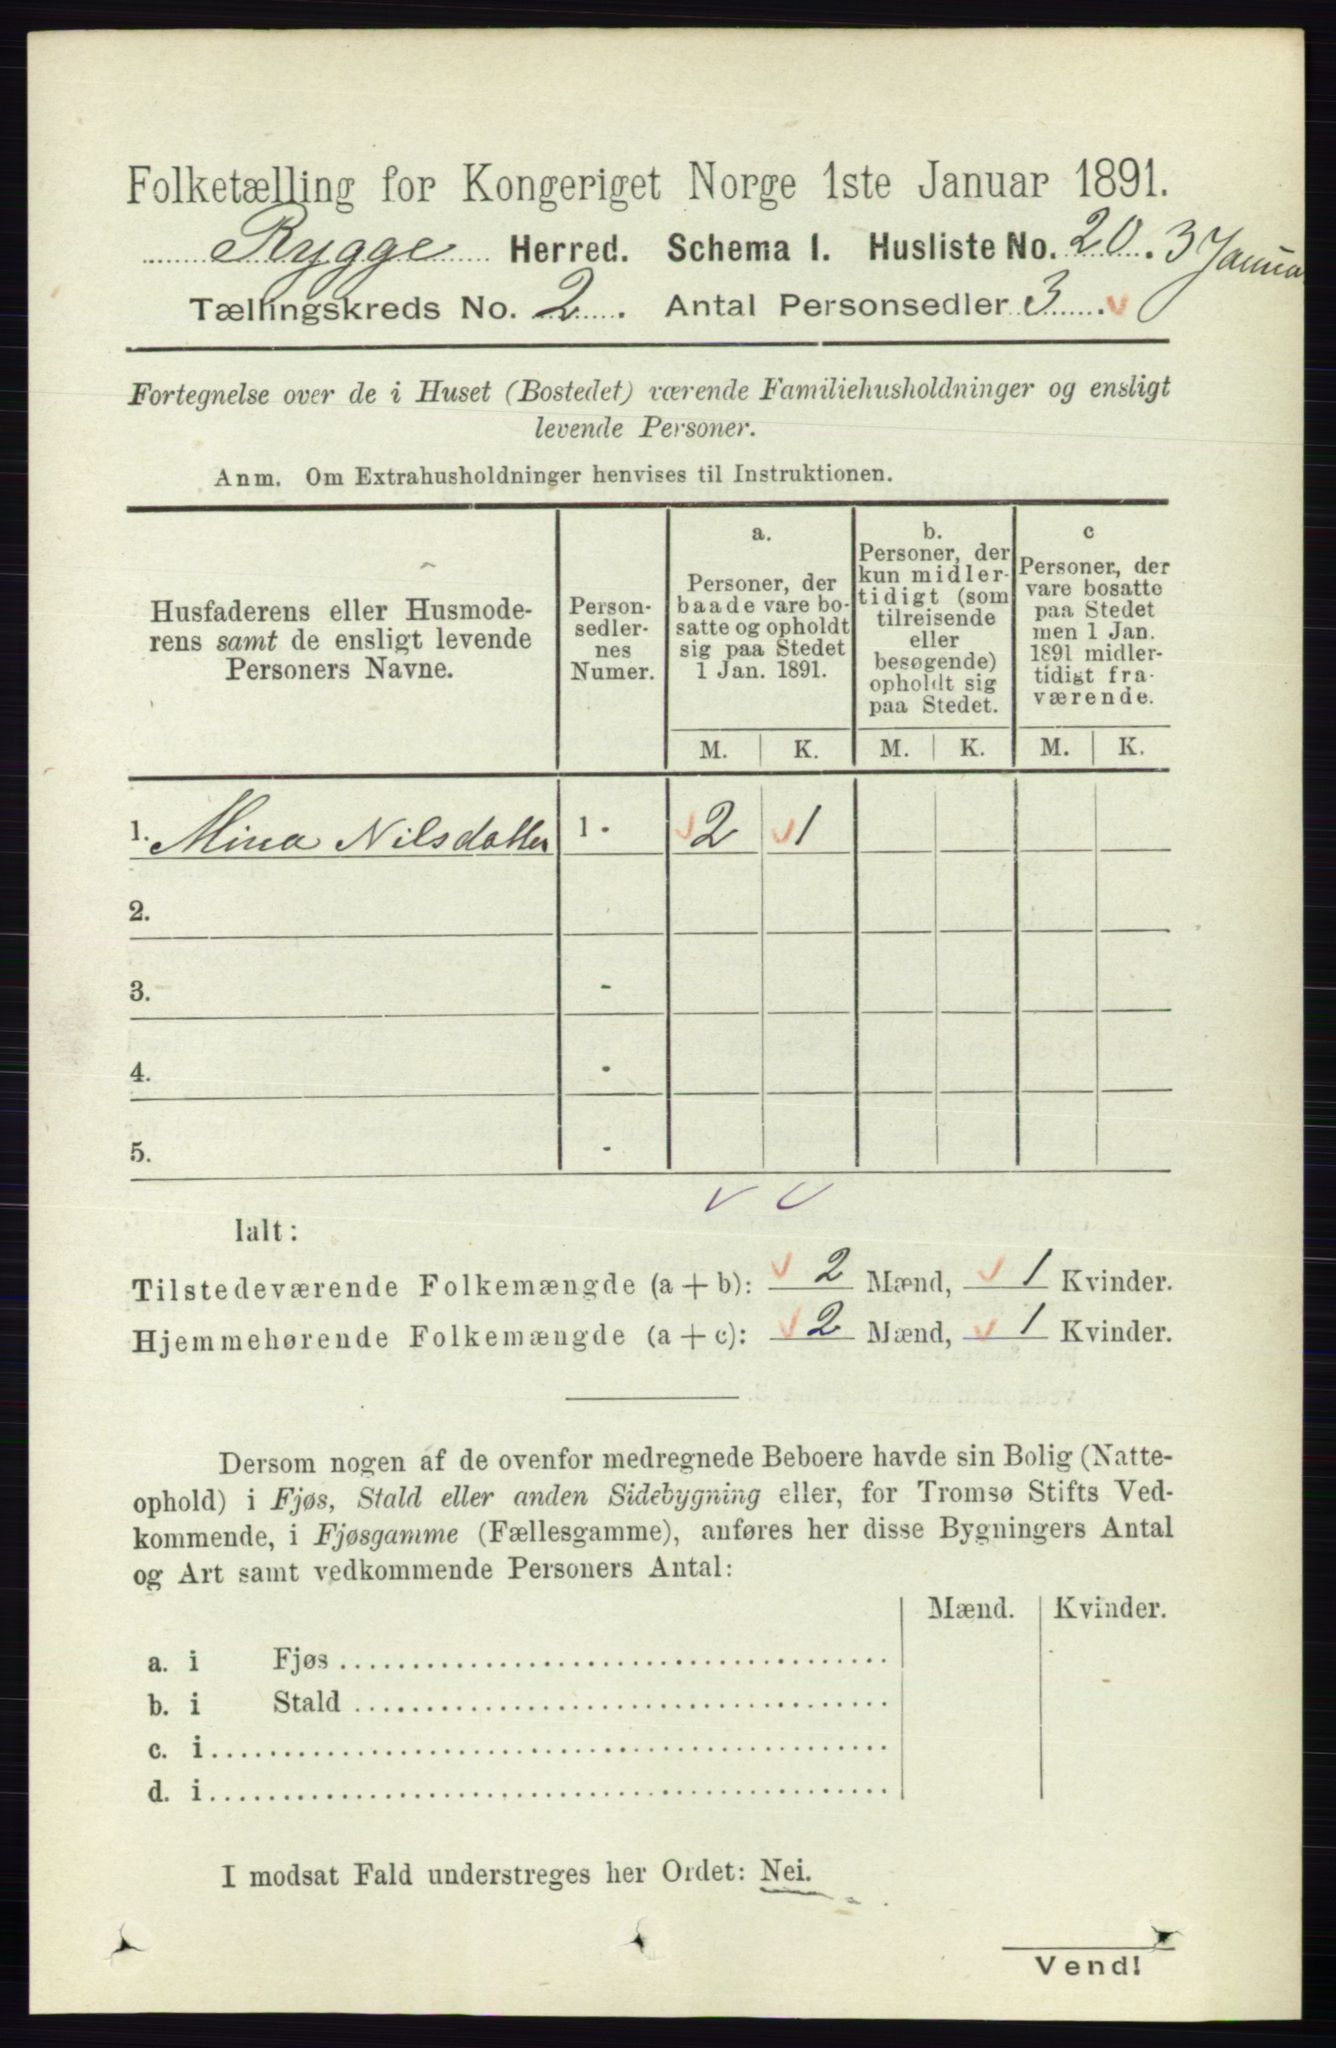 Folketælling for Kongeriget Norge 1ste Januar 1891.
Rygge Herred. Schema I. Husliste No. 20. 3 Januar
Tællingskreds No. 2. Antal Personsedler 3.
Fortegnelse over de i Huset (Bostedet) værende Familiehusholdninger og ensligt
levende Personer.
Anm. Om Extrahusholdninger henvises til Instruktionen.
Husfaderens eller Husmode-
rens samt de ensligt levende
Personers Navne.
Person-
sedler-
nes
Numer.
a.
Personer, der
baade vare bo-
satte og opholdt
sig paa Stedet
1 Jan. 1891.
b.
Personer, der
kun midler-
tidigt (som
tilreisende
eller
besøgende)
opholdt sig
paa Stedet.
c
Personer, der
vare bosatte
paa Stedet
men 1 Jan.
1891 midler-
tidigt fra-
værende.
M. K. M. K. M. K.
1. Mina Nilsdatter 1. 2 1
2.
3. -
4. -
5. -
Ialt:
Tilstedeværende Folkemængde (a + b): 2 Mænd, 1 Kvinder.
Hjemmehørende Folkemængde (a + c): 2 Mænd, 1 Kvinder.
Dersom nogen af de ovenfor medregnede Beboere havde sin Bolig (Natte-
ophold) i Fjøs, Stald eller anden Sidebygning eller, for Tromsø Stifts Ved-
kommende, i Fjøsgamme (Fællesgamme), anføres her disse Bygningers Antal
og Art samt vedkommende Personers Antal:
Mænd. Kvinder.
a. i Fjøs
b. i Stald
c. i
d. i
I modsat Fald understreges her Ordet: Nei.
Vend!